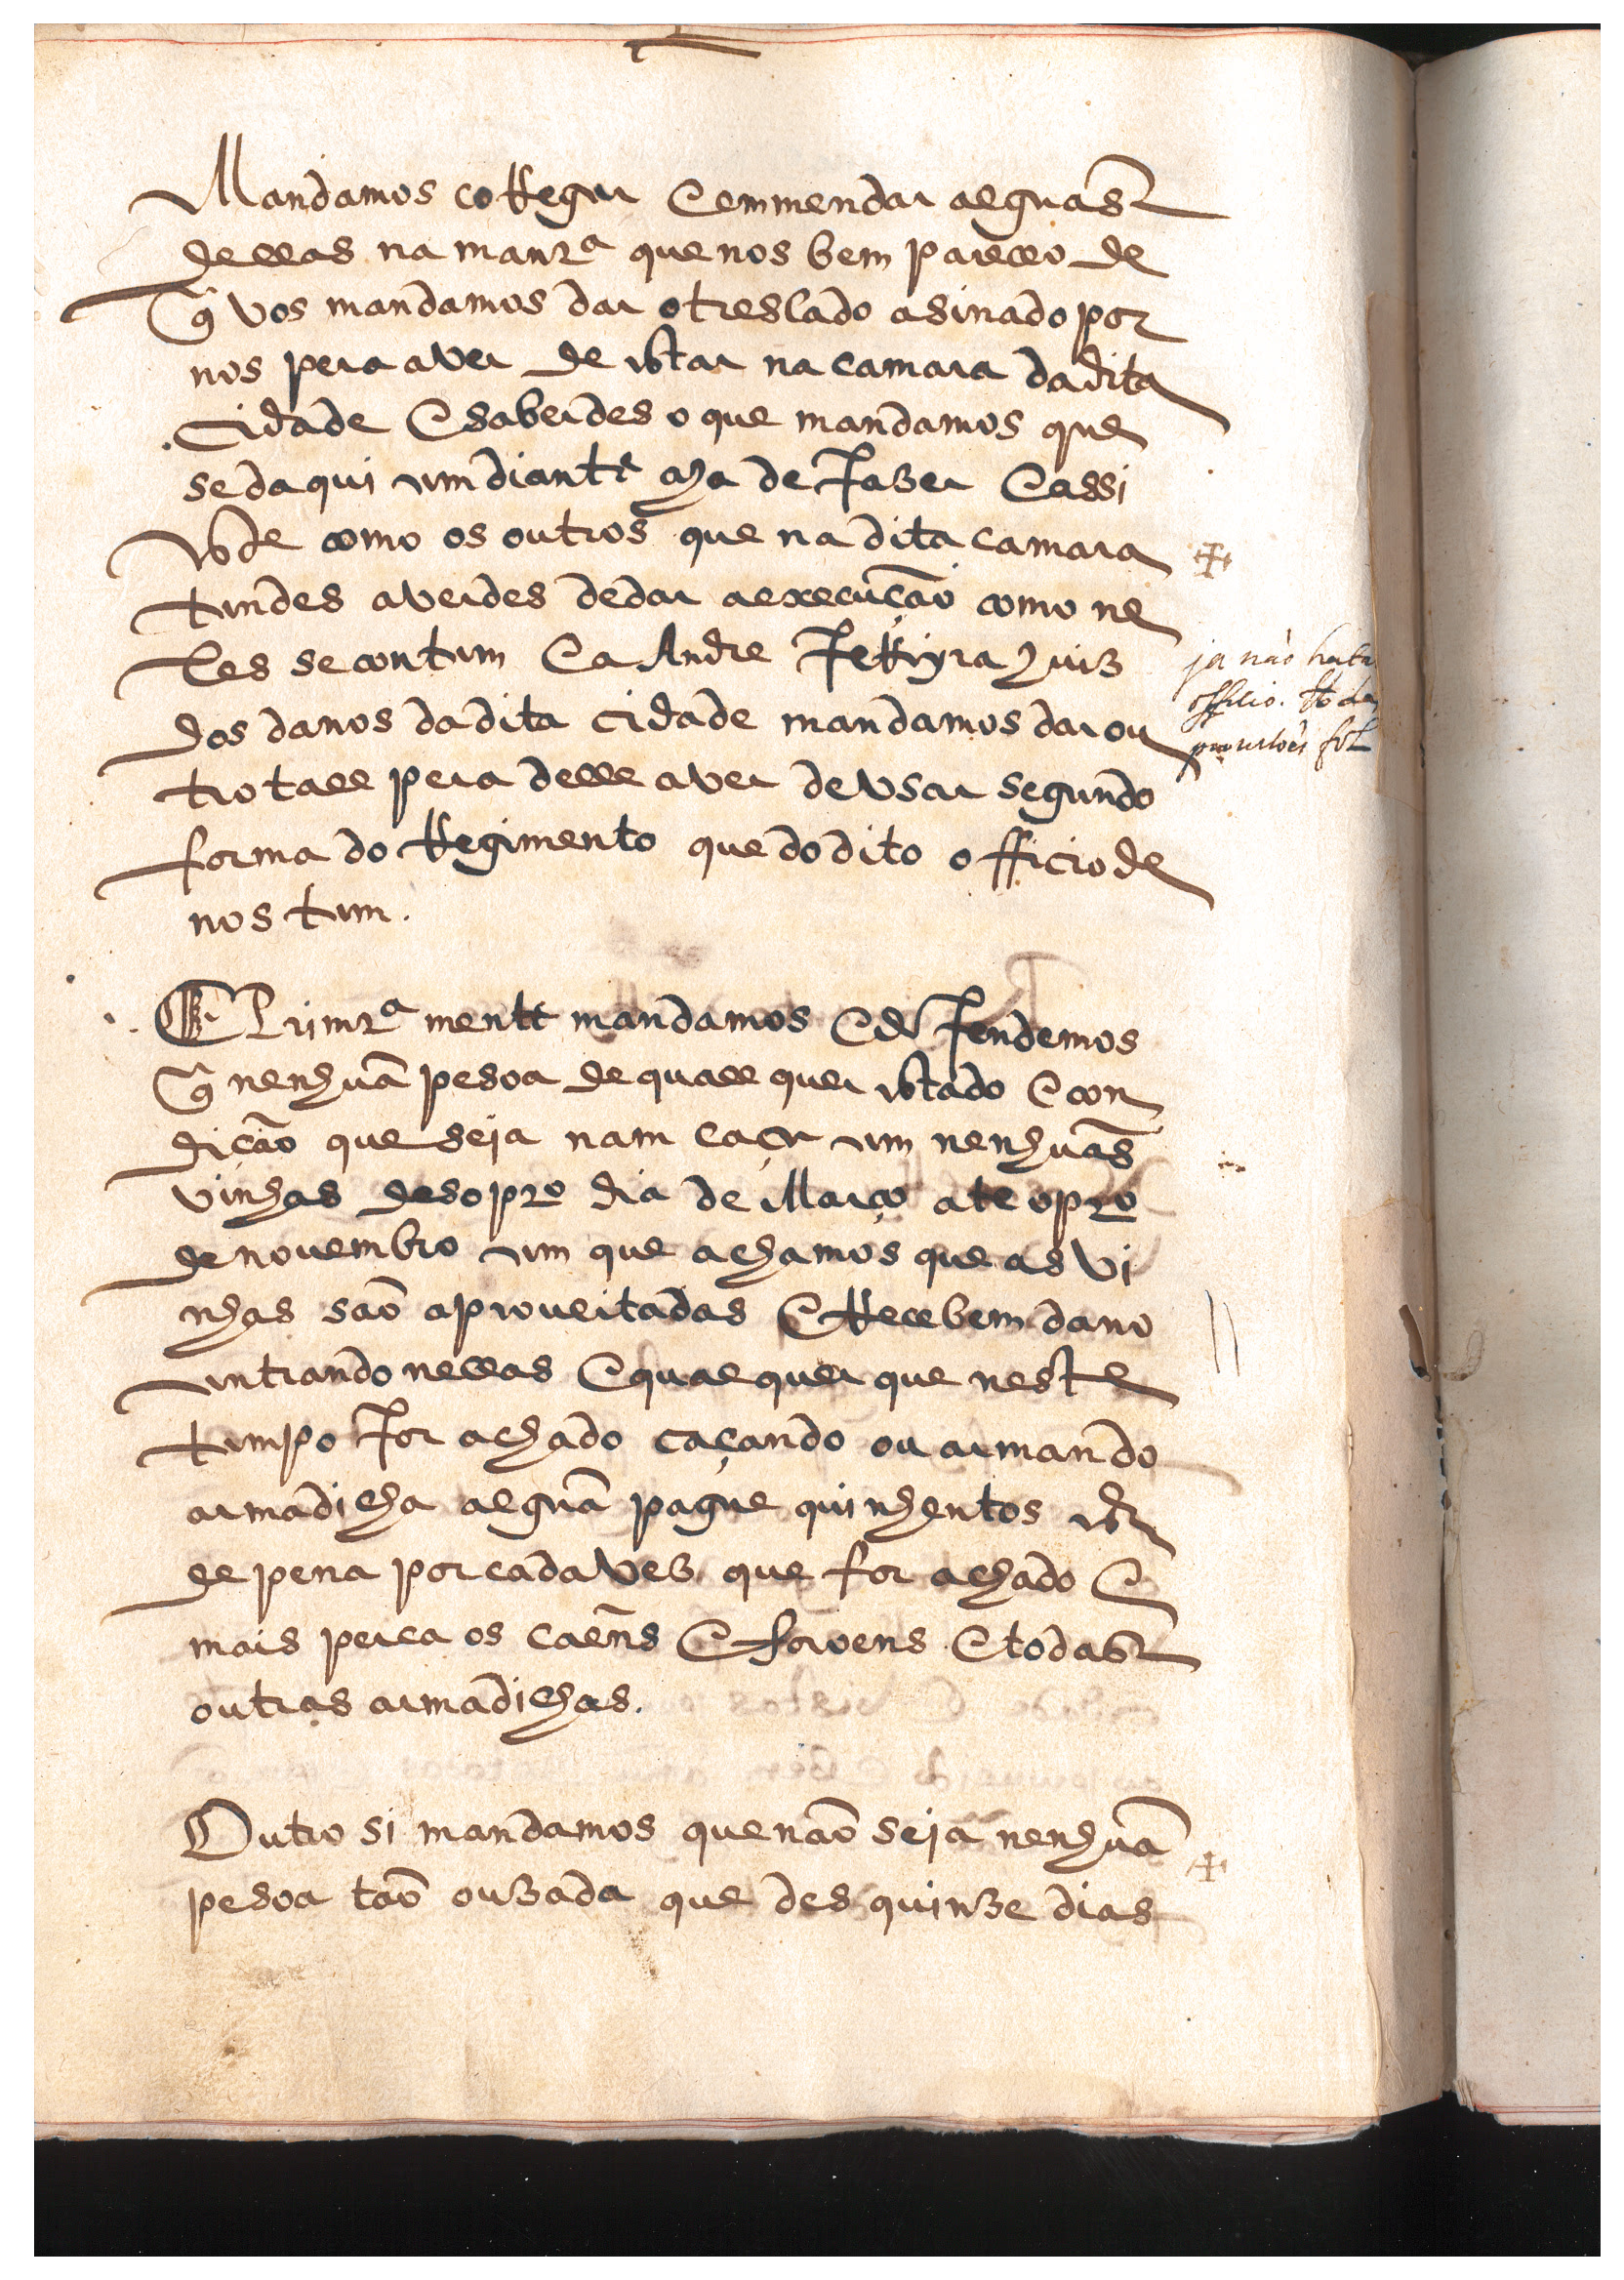 Mandamos coReger E emmendar alguas
dellas na manrª que nos bem pareceo de
q̃ vos mandamos dar o treslado asinado por
nos pera aver de estar na camara da dita
Cidade E saberdes o que mandamos que
se daqui em diante aja de fazer E assi
este como os outros que na dita camara
tendes averdes de dar a execução como ne
les se contem E a Andre feReyra Juiz
dos danos da dita cidade mandamos dar ou
tro tall pera delle aver de usar segundo
forma do Regimento que do dito officio de
nos tem.
ja não ha tal
officio.
Primrª mente mandamos E defendemos
q̃ nenhuã pesoa de quall quer estado E con
dição que seja nam cace em nenhuãs
vinhas des o prº dia de Março ate o prº
de novembro em que achamos que as vi
nhas são aproveitadas E Recebem dano
entrando nellas E qualquer que neste
tempo for achado caçando ou armando
armadilha alguã pague quinhentos rs
de pena por cada vez que for achado E
mais perca os cães E foroens E todas
outras armadilhas.
Outro si mandamos que não seja nenhuã
pesoa tão ouzada que des quinze dias